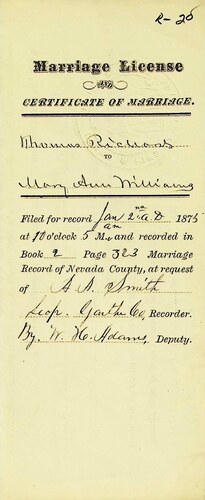 R-25
Marriage License
AND
CERTIFICATE OF MARRIAGE.
Thomas Richards
TO
Mary Ann Williams
Filed for record Jan 2nd A.D 1875
at 10 o'clock 5 M. am and recorded in
Book 2 Page 323 Marriage
Record of Nevada County, at request
of A. A. Smith
Recorder.
By, W. H. Adams, Deputy.